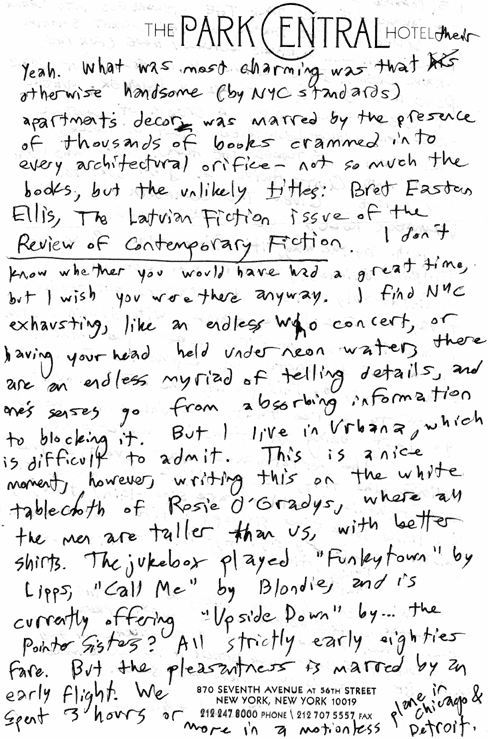 THE PARK CENTRAL HOTEL their
Yeah. What was most charming was that his
otherwise handsome (by NYC standards)
apartments decor was marred by the presence
of thousands of books crammed into
every architectural orifice - not so much the
books, but the unlikely titles: Bret Easton
Ellis, The Latvian Fiction issue of the
Review of Contemporary Fiction. I don't
know whether you would have had a great time,
but I wish you were there anyway. I find NYC
exhausting, like an endless Who concert, or
having your head held under neon water; there
are an endless myriad of telling details, and
one's senses go from absorbing information
to blocking it. But I live in Urbana, which
is difficult to admit. This is a nice
moment, however, writing this on the white
tablecloth of Rosie O'Gradys, where all
the men are taller than us, with better
shirts. The jukebox played "Funkytown" by
Lipps, "Call Me" by Blondie, and is
currently offering "Upside Down" by... the
Pointer Sisters? All strictly early eighties
fare. But the pleasantness is marred by an
early flight. We
spent 3 hours or more in a motionless plane in Chicago &
Detroit.
870 SEVENTH AVENUE AT 56TH STREET
NEW YORK, NEW YORK 10019
212 247 8000 PHONE \ 212 707 5557 FAX